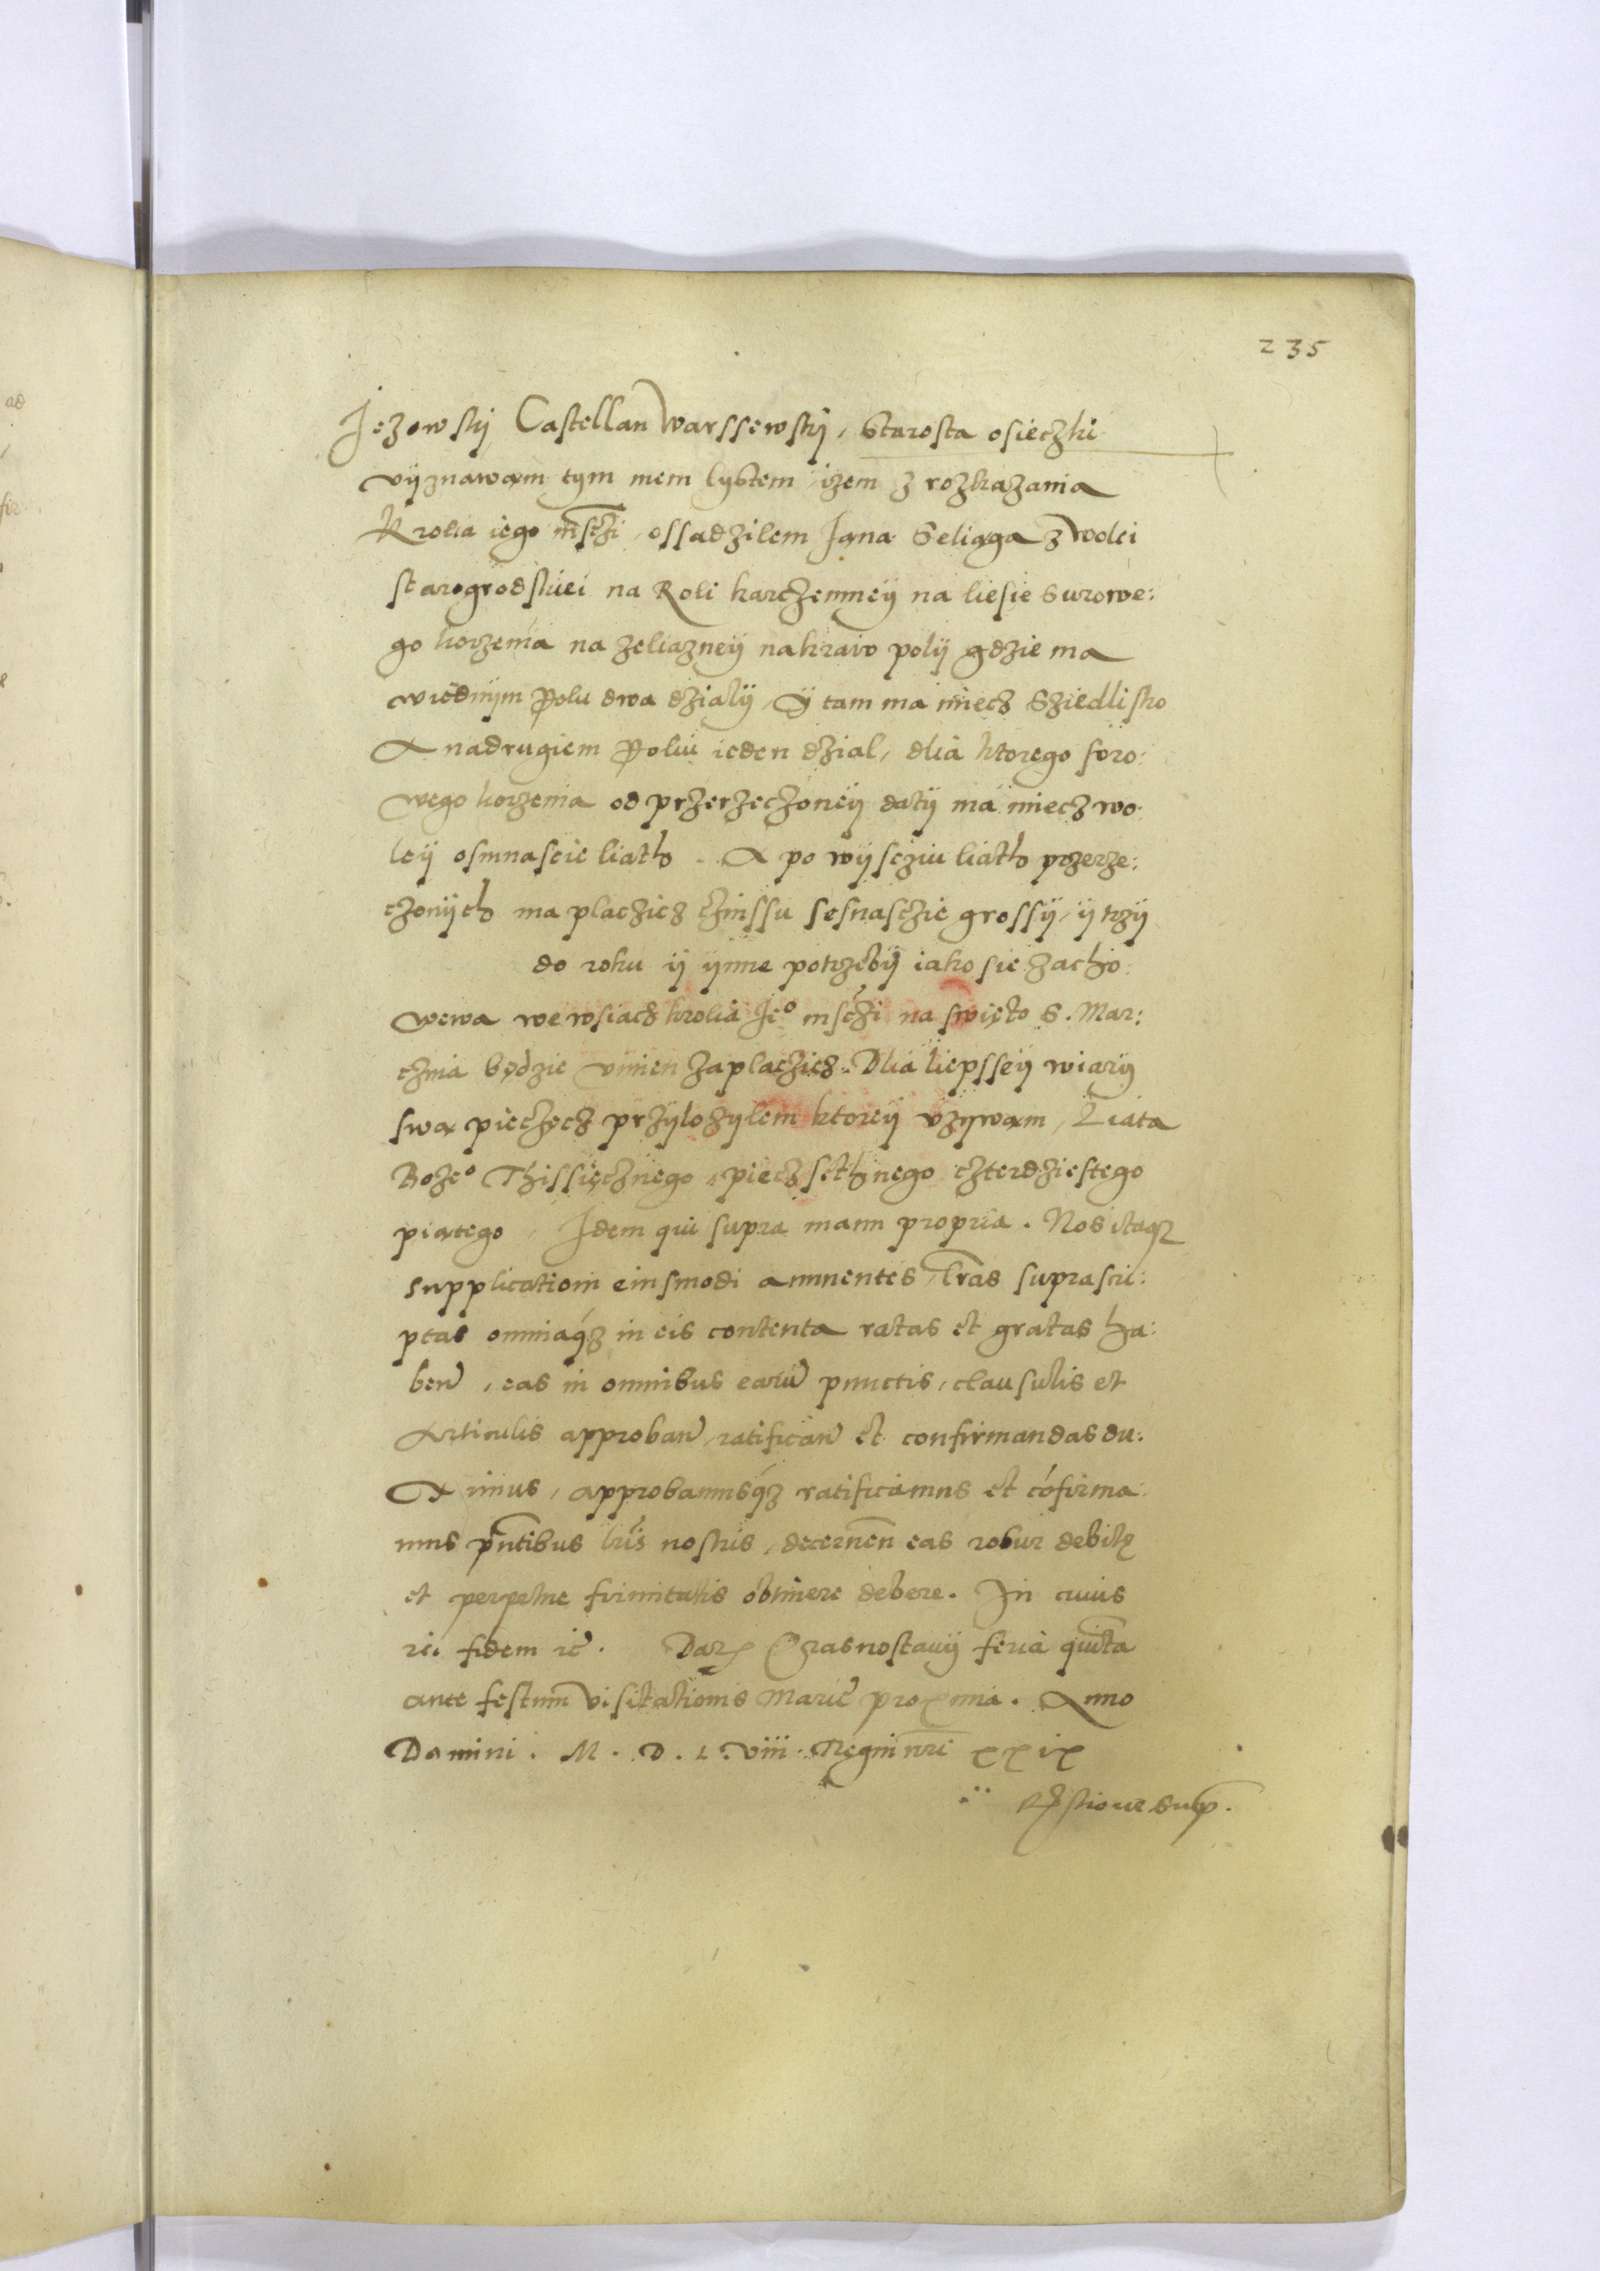 235
Jezowskij Castellan Warssewskij, Starosta osieczki
vijznawam tym mem lystem, izem z rozkazania
Krolia iego mſczi, ossadzilem Jana Seliąga z Wolei
starogrodskiei na Roli karczemneij na liesie surowe:
go korzenia na zeliazneij nakraiv polij gdzie ma
wiednijm Polu dwa dzialij, Ij tam ma miecz Sziedlisko
A nadrugiem Poliu ieden dzial, dlia ktorego suro:
wego korzenia od przerzeczoneij datij ma miecz wo:
leij osmnascie liath. A po wijscziu liath przerze:
czonijch ma placzicz czinssu sesnasczie grossij, ij trzij
do roku ij ijnne potrzebij iako sie zacho:
wewa wewsiach krolia Jeo mſczi na swięto S. Mar:
czina będzie vinien zaplaczicz. Dlia liepsseij wiarij
swą pieczęcz przijlozylem ktoreij vzijwam, Liata
Bozeo Thissięcznego, pięczsethnego czterdziestego
piątego, Idem qui supra manu propria. Nos itaqz
supplicationi eiusmodi annuentes, lras suprascri:
ptas omniaqz in eis contenta ratas et gratas ha:
ben, eas in omnibus earu punctis, clausulis et
Articulis approban, ratifican et confirmandas du:
ximus, approbamusqz ratificamus et cofirma:
mus pntibus lris nostris, decernen eas robur debite
et perpetue firmitatis obtinere debere. In cuius
rei fidem ic. Dat Crasnostavij feria quinta
ante festum visitationis Marie proxima. Anno
Domini. M. D. L. viii. Regni nri xxix